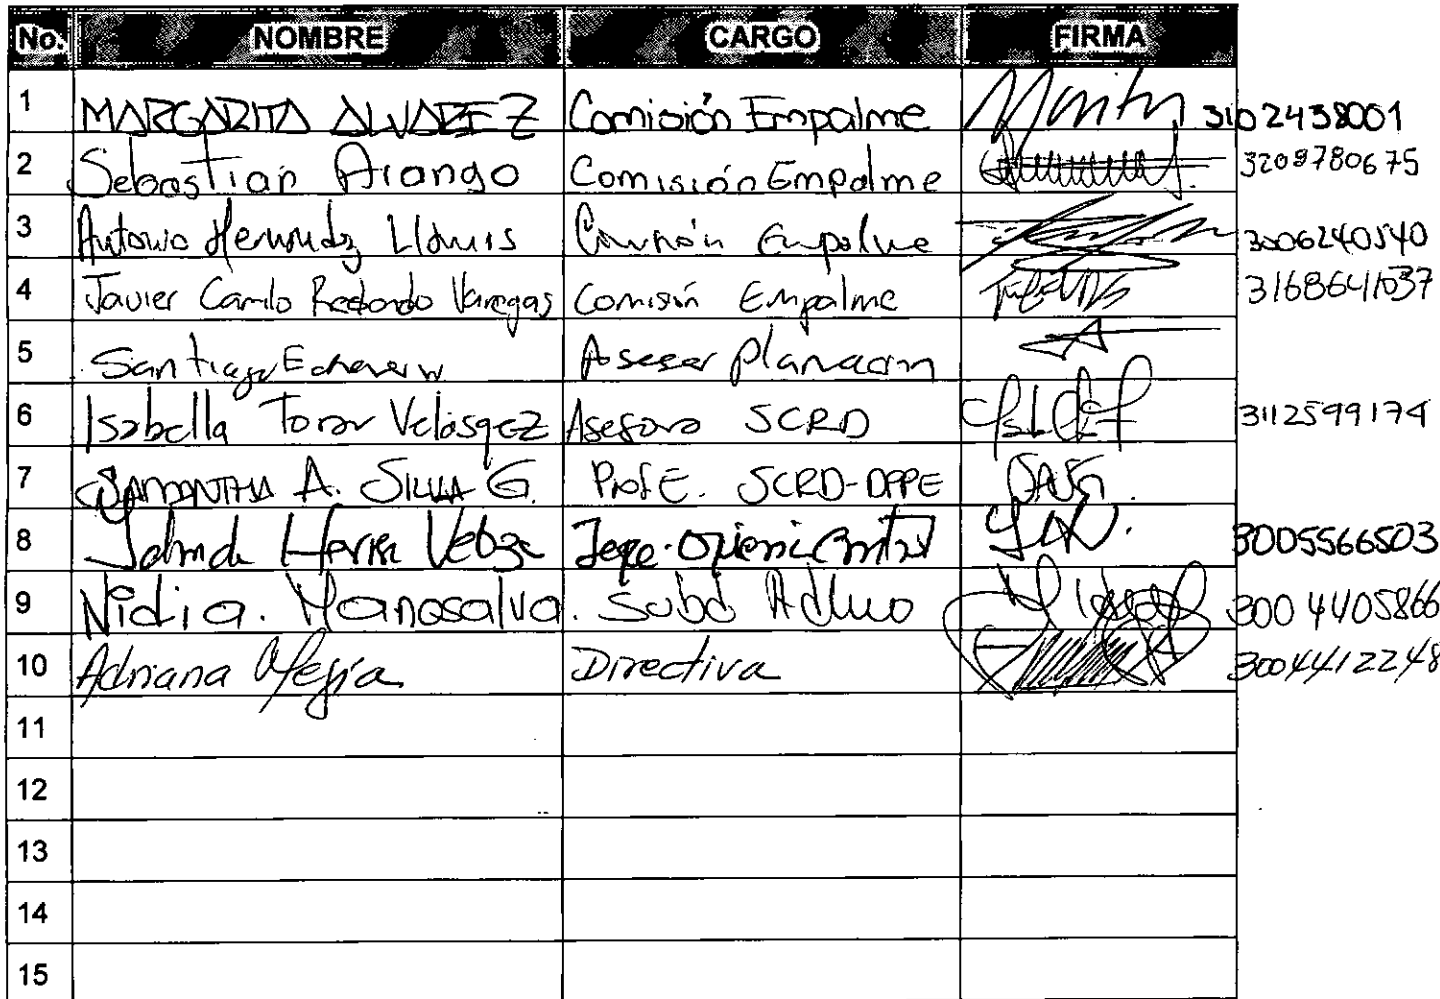 No. NOMBRE CARGO FIRMA
1 MARGARITA ALVAREZ Comisión Empalme 3102438001
2 Sebastian Arango Comisión Empalme 3209780675
3 Antonio Hernandez Llamas Comisión Empalme 3006240540
4 Javier Camilo Redondo Vanegas Comisión Empalme 3168641037
5 Santiago Echeverri Asesor planeacion
6 Isabella Tovar Velásqez Asesora SCRD 3112599174
7 SAMANTHA A. SILVA G. Prof E. SCRD-DPPE SASG.
8 Herrera Jefe 3005566503
9 Nidia. Manosalva. Subd Admvo 3004405866
10 Adriana Mejía Directiva 3004412248
11
12
13
14
15